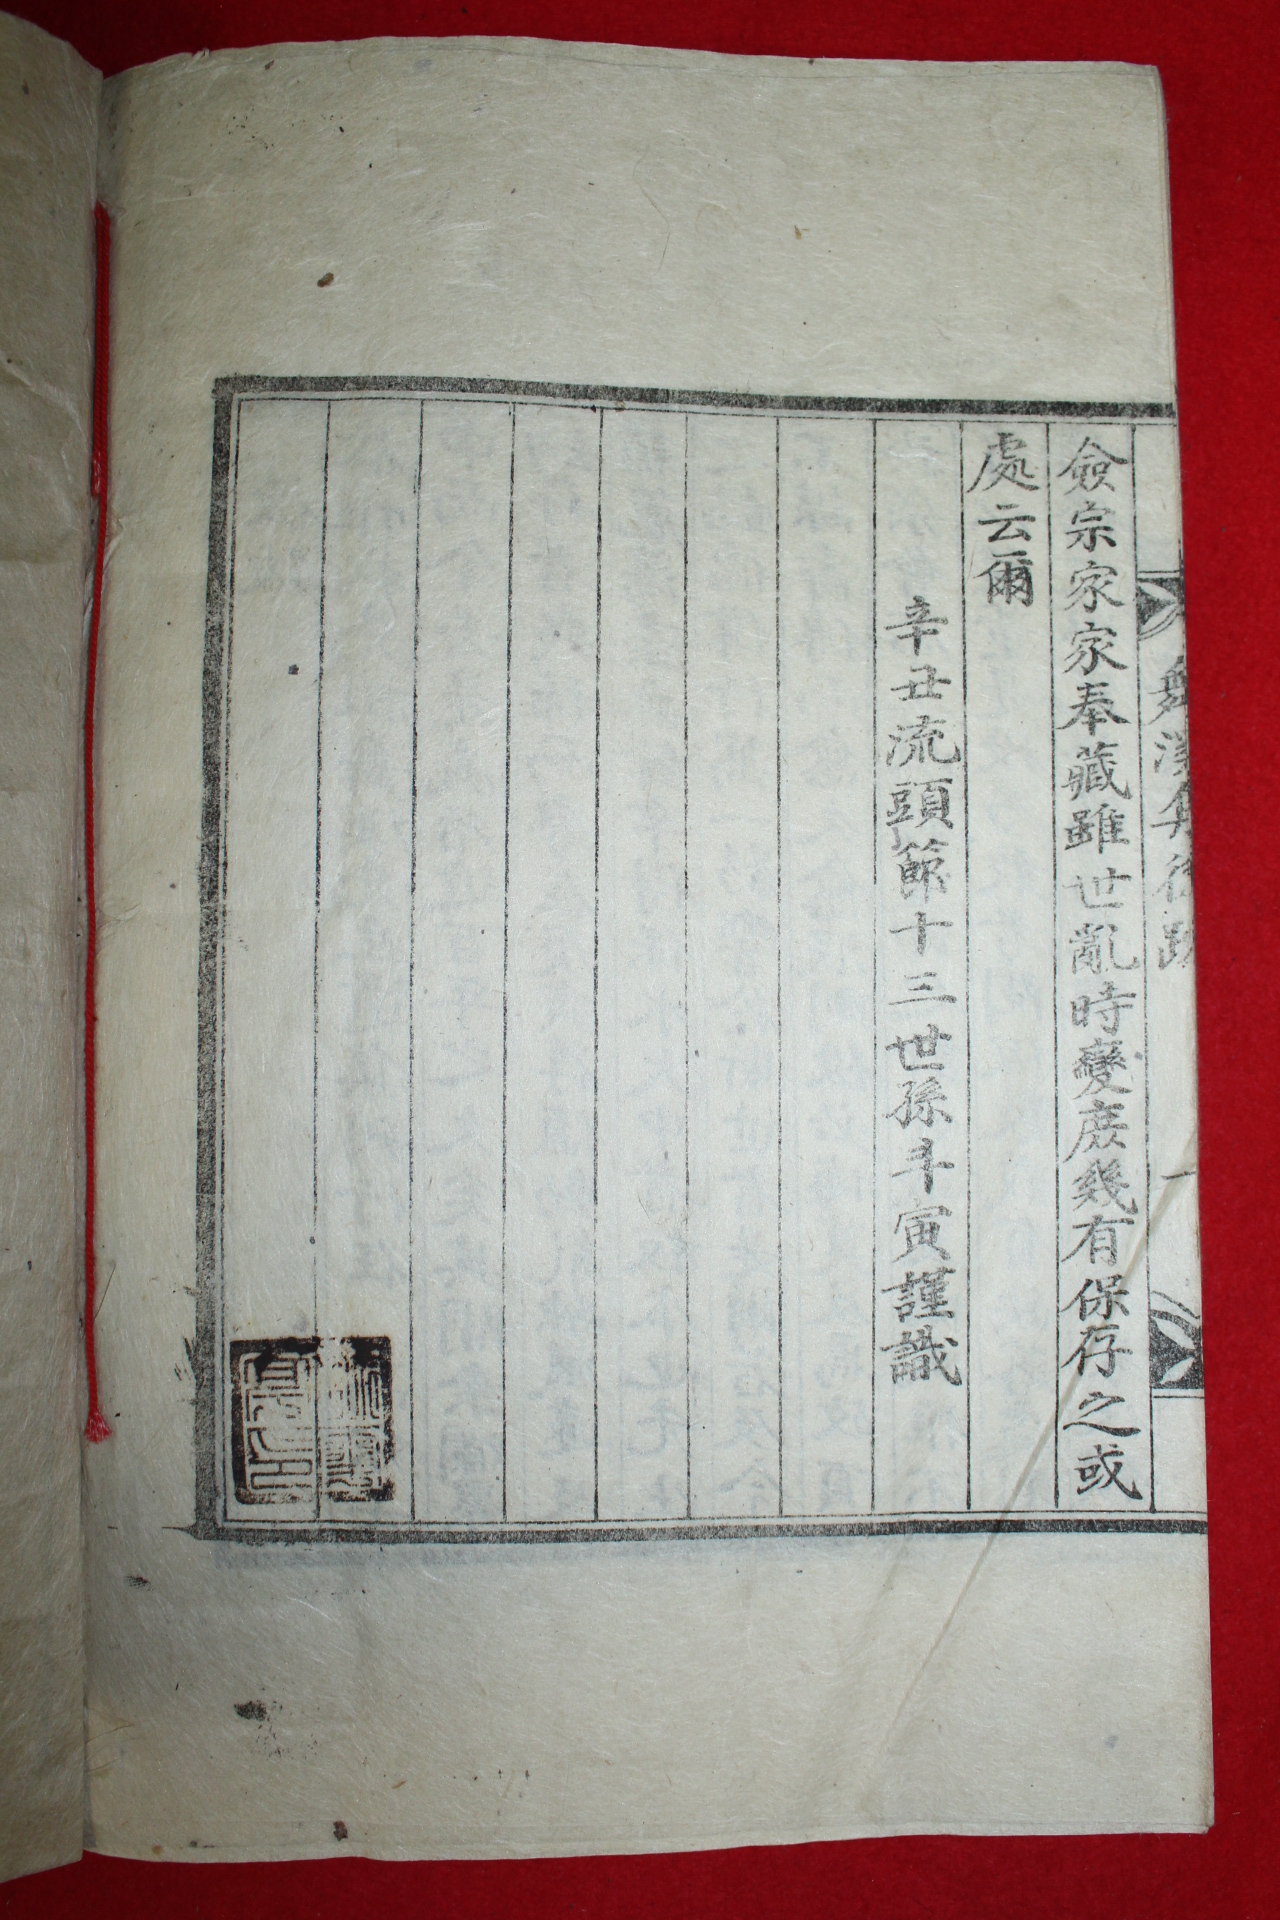 僉宗家家奉藏雖世亂時變庶幾有保存之或
處云爾
辛丑流頭節十三世孫斗寅謹識